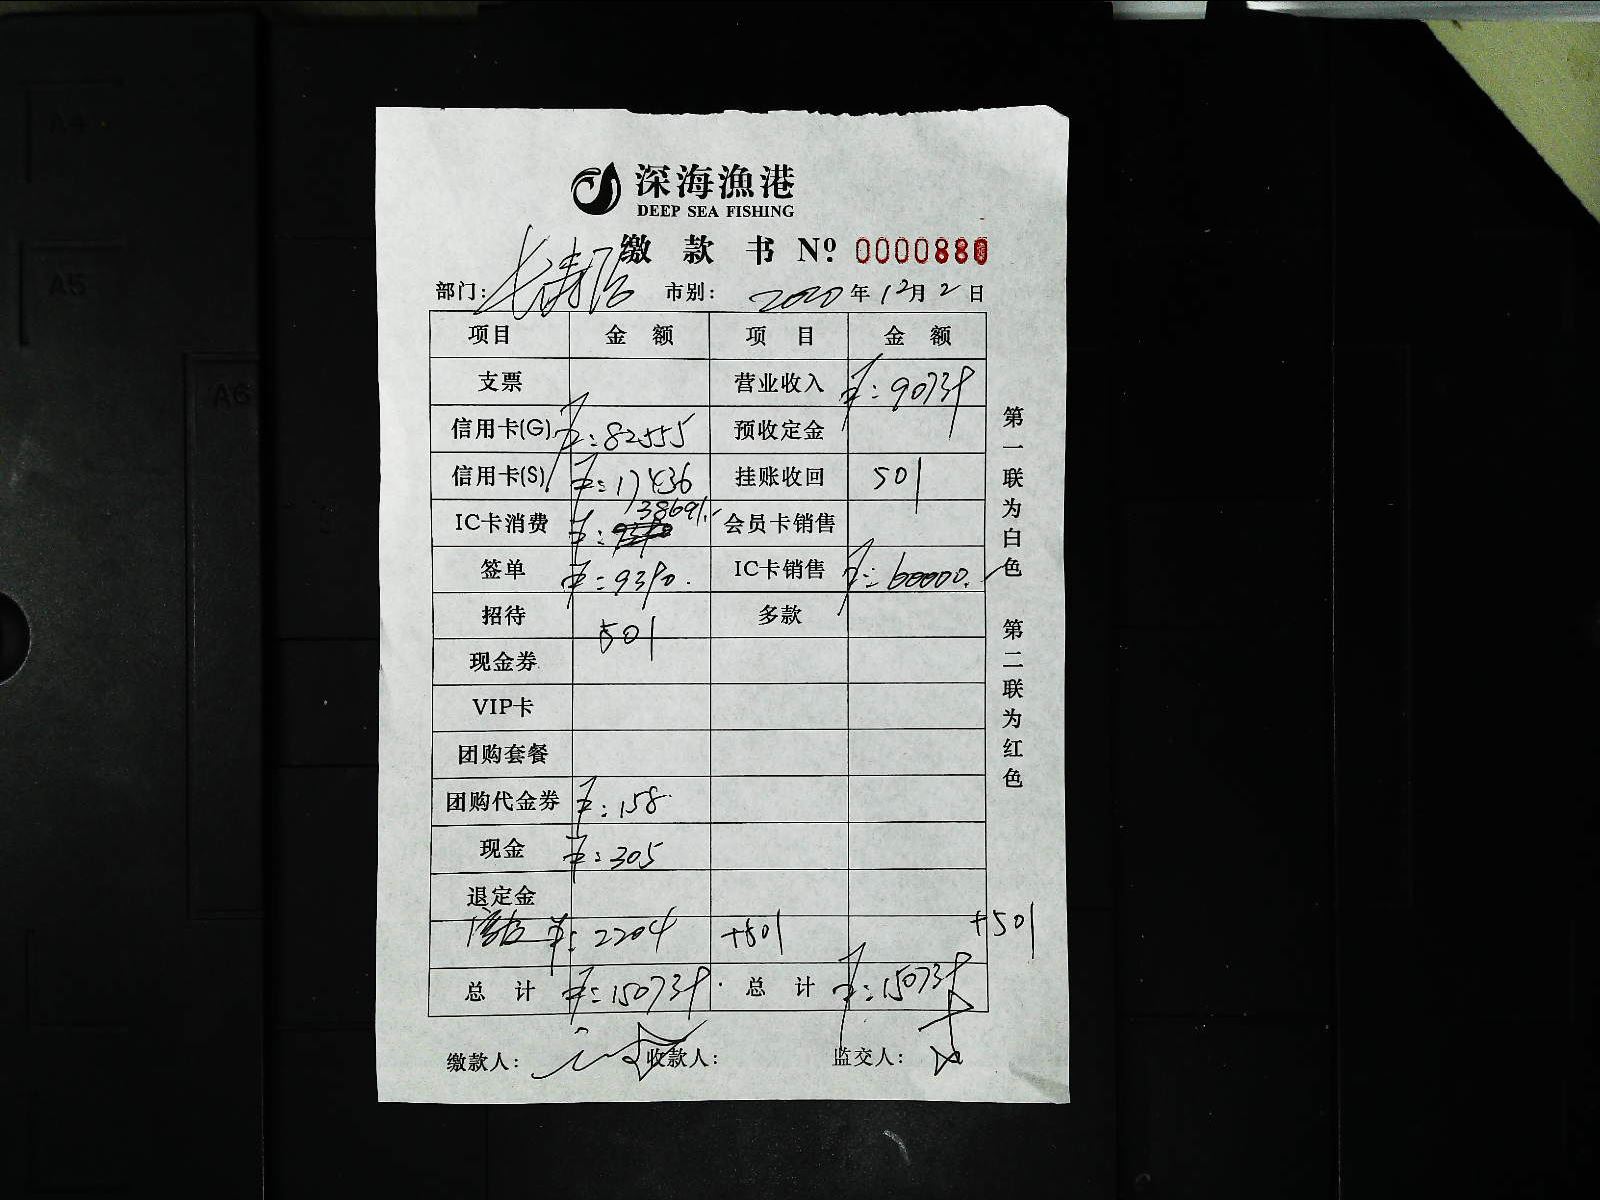 深海漁港
DEEP SEA FISHING
缴款书 Nº 0000880
部门： 市别： 2020年12月2日
项目 金额 项目 金额
支票 营业收入 ¥:90739
信用卡(G) ¥:82555 预收定金
信用卡(S) ¥:17436 挂账收回 501
IC卡消费 ¥: 38691.- 会员卡销售
签单 ¥:9390. IC卡销售 ¥:60000.
招待 501 多款
现金券
VIP卡
团购套餐
团购代金券 ¥:158.
现金 ¥:305
退定金
¥:2204 +501 +501
总计 ¥:150739. 总计 ¥:150739
缴款人： 收款人： 监交人：
第一联为白色 第二联为红色
A4
A5
A6